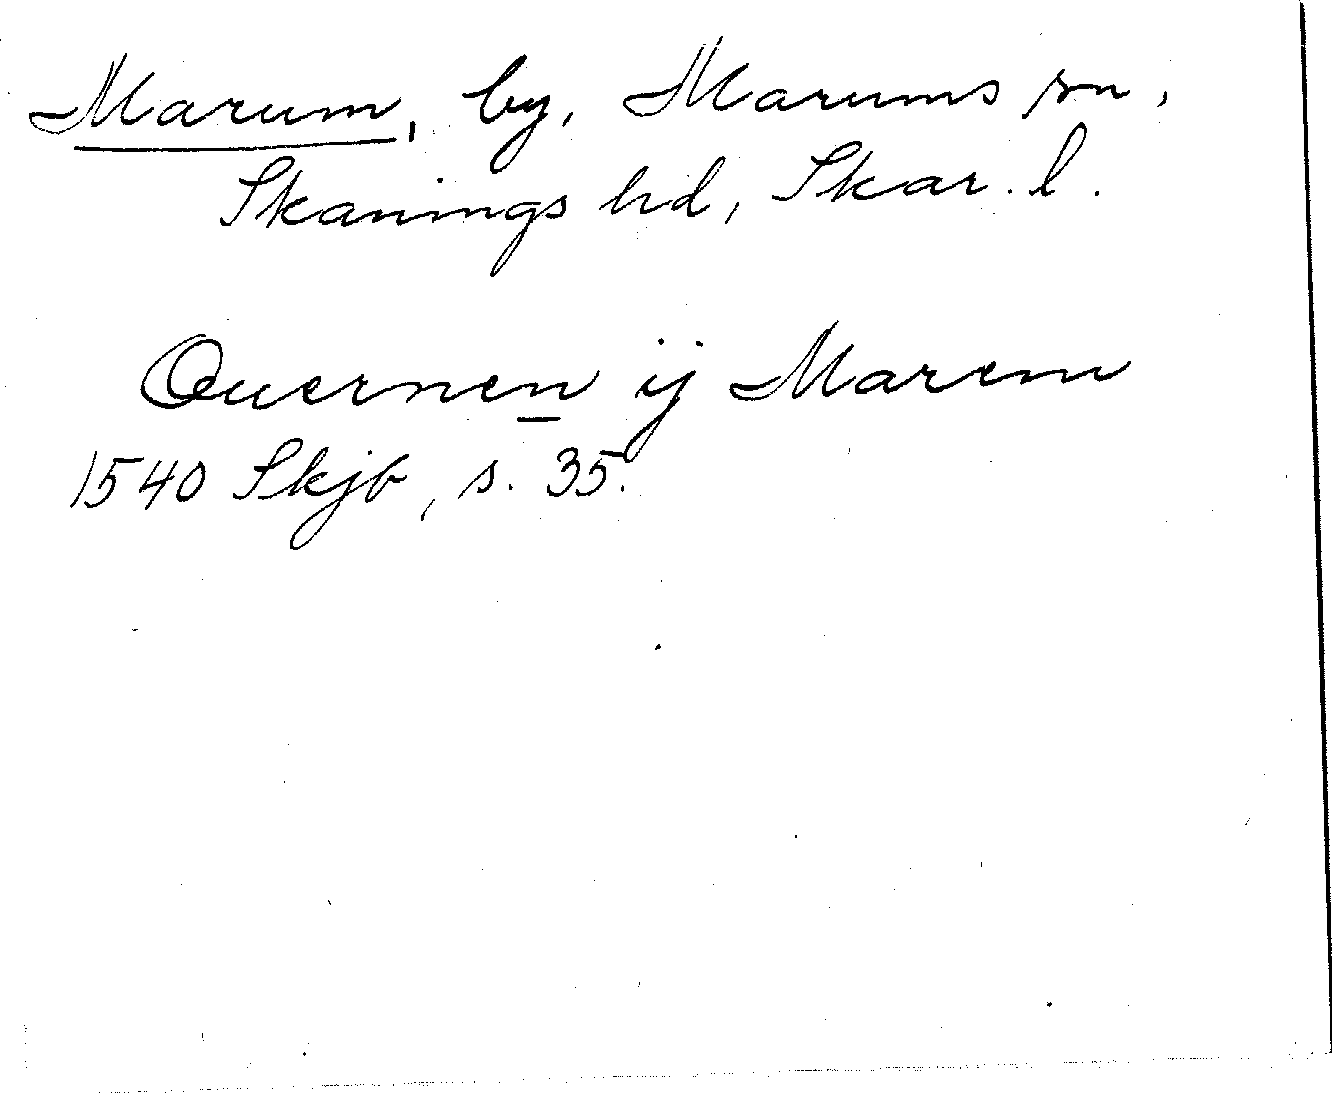 Marum, by, Marums sn,
Skanings hd, Skar. l.
Quernen ij Marem
1540 Skjb, s. 35.